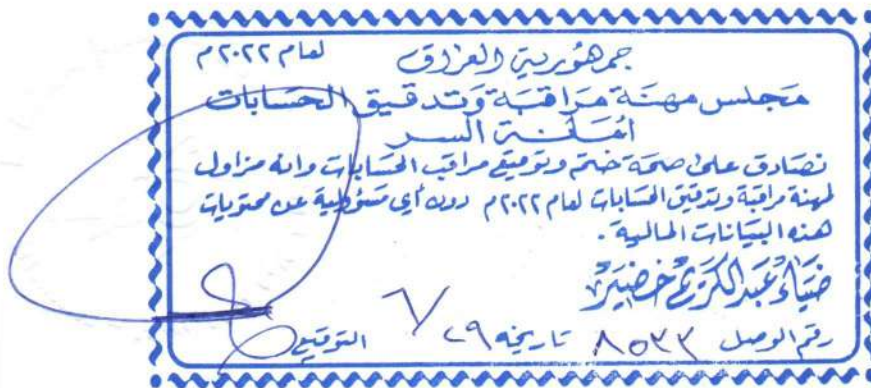 جمهورية العراق لعام ٢٠٢٢م
مجلس مهنة مراقبة وتدقيق الحسابات
أمانة السر
نصادق على صحة ختم وتوقيع مراقب الحسابات وانه مزاول
لمهنة مراقبة وتدقيق الحسابات لعام ٢٠٢٢م دون أي مسؤولية عن محتويات
هذه البيانات المالية.
ضياء عبد الكريم خضير
رقم الوصل ٨٥٣٣ تاريخه ٦/٢٩ التوقيع